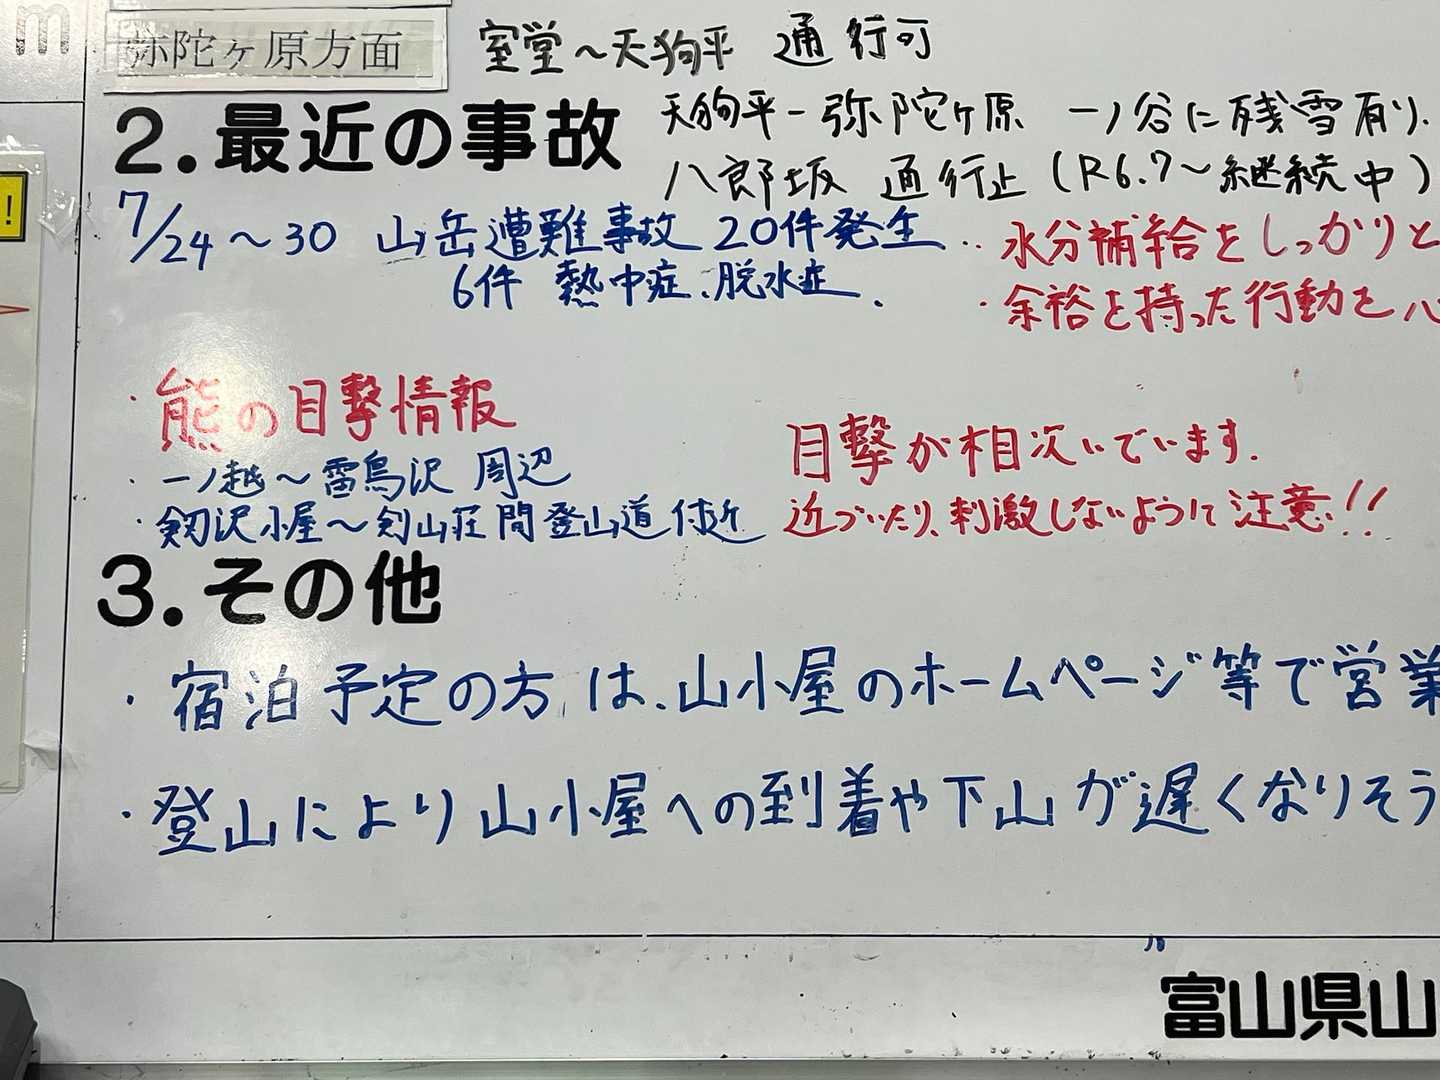 m
弥陀ヶ原方面
室堂～天狗平 通行可
天狗平-弥陀ヶ原 一ノ谷に残雪有り.
八郎坂 通行止(R6.7～継続中)
2.最近の事故
!
7/24～30 山岳遭難事故 20件発生..
6件 熱中症、脱水症.
・水分補給をしっかりと
・余裕を持った行動を心
・熊の目撃情報
・一ノ越～雷鳥沢 周辺
・剱沢小屋～剣山荘間登山道付近
目撃が相次いでいます.
近づいたり、刺激しないように注意!!
3.その他
・宿泊予定の方は、山小屋のホームページ等で営業
・登山により山小屋への到着や下山が遅くなりそう
富山県山